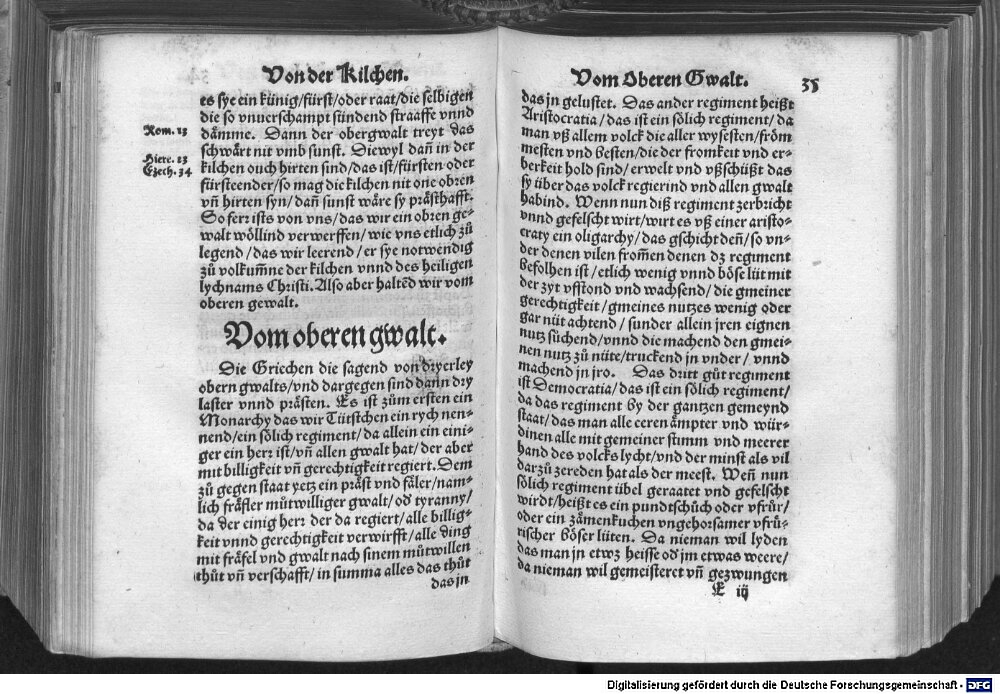 Von der Kilchen.
es sye ein künig/fürst/oder raat/die selbigen
die so vnuerschampt sündend straaffe vnnd
Rom. 13
dämme. Dann der obergwalt treyt das
schwärt nit vmb sunst. Diewyl dañ in der
Hiere. 23
kilchen ouch hirten sind/das ist/fürsten oder
Ezech. 34
fürsteender/so mag die kilchen nit one obren
vñ hirten syn/dañ sunst wäre sy prästhafft.
So ferr ists von vns/das wir ein obren ge-
walt wöllind verwerffen/wie vns etlich zů
legend/das wir leerend/er sye notwendig
zů volkum̃ne der kilchen vnnd des heiligen
lychnams Christi. Also aber haltẽd wir vom
oberen gewalt.
Vom oberen gwalt.
Die Griechen die sagend von dryerley
obern gwalts/vnd dargegen sind dann dry
laster vnnd prästen. Es ist zům ersten ein
Monarchy das wir Tütstchen ein rych nen-
nend/ein sölich regiment/da allein ein eini-
ger ein herr ist/vñ allen gwalt hat/der aber
mit billigkeit vñ gerechtigkeit regiert. Dem
zů gegen staat yetz ein präst vnd fäler/nam-
lich fräfler můtwilliger gwalt/od tyranny/
da der einig herr der da regiert/alle billig-
keit vnnd gerechtigkeit verwirfft/alle ding
mit fräfel vnd gwalt nach sinem můtwillen
thůt vñ verschafft/in summa alles das thůt
das jn
Vom Oberen Gwalt. 35
das jn gelustet. Das ander regiment heißt
Aristocratia/das ist ein sölich regiment/da
man vß allem volck die aller wysesten/fröm
mesten vnd besten/die der fromkeit vnd er-
berkeit hold sind/erwelt vnd vßschüßt das
sy über das volck regierind vnd allen gwalt
habind. Wenn nun diß regiment zerbricht
vnnd gefelscht wirt/wirt es vß einer aristo-
craty ein oligarchy/das gschicht deñ/so vn-
der denen vilen from̃en denen dz regiment
befolhen ist/etlich wenig vnnd böse lüt mit
der zyt vfstond vnd wachsend/die gmeiner
gerechtigkeit/gmeines nutzes wenig oder
gar nüt achtend/sunder allein jren eignen
nutz sůchend/vnnd die machend den gmei-
nen nutz zů nüte/truckend jn vnder/vnnd
machend jn jro. Das dritt gůt regiment
ist Democratia/das ist ein sölich regiment/
da das regiment by der gantzen gemeynd
staat/das man alle eeren ämpter vnd wür-
dinen alle mit gemeiner stimm vnd meerer
hand des volcks lycht/vnd der minst als vil
darzů zereden hat als der meest. Weñ nun
sölich regiment übel geraatet vnd gefelscht
wirdt/heißt es ein pundtschůch oder vfrůr/
oder ein zämenkuchen vngehorsamer vfrů-
rischer böser lüten. Da nieman wil lyden
das man jn etwz heisse od jm etwas weere/
da nieman wil gemeisteret vñ gezwungen
E iij
Digitalisierung gefördert durch die Deutsche Forschungsgemeinschaft - DFG